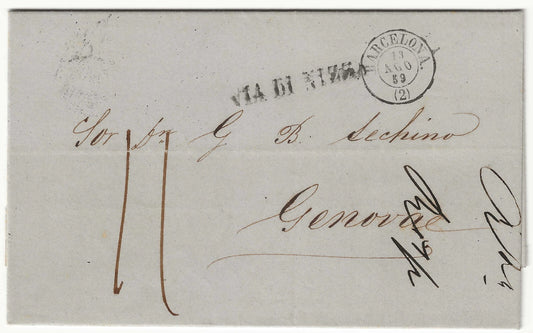 VIA DI NIZZA
BARCELONA.
13
AGO
59
(2)
Sor Dn G B. Sechino
Genova
11